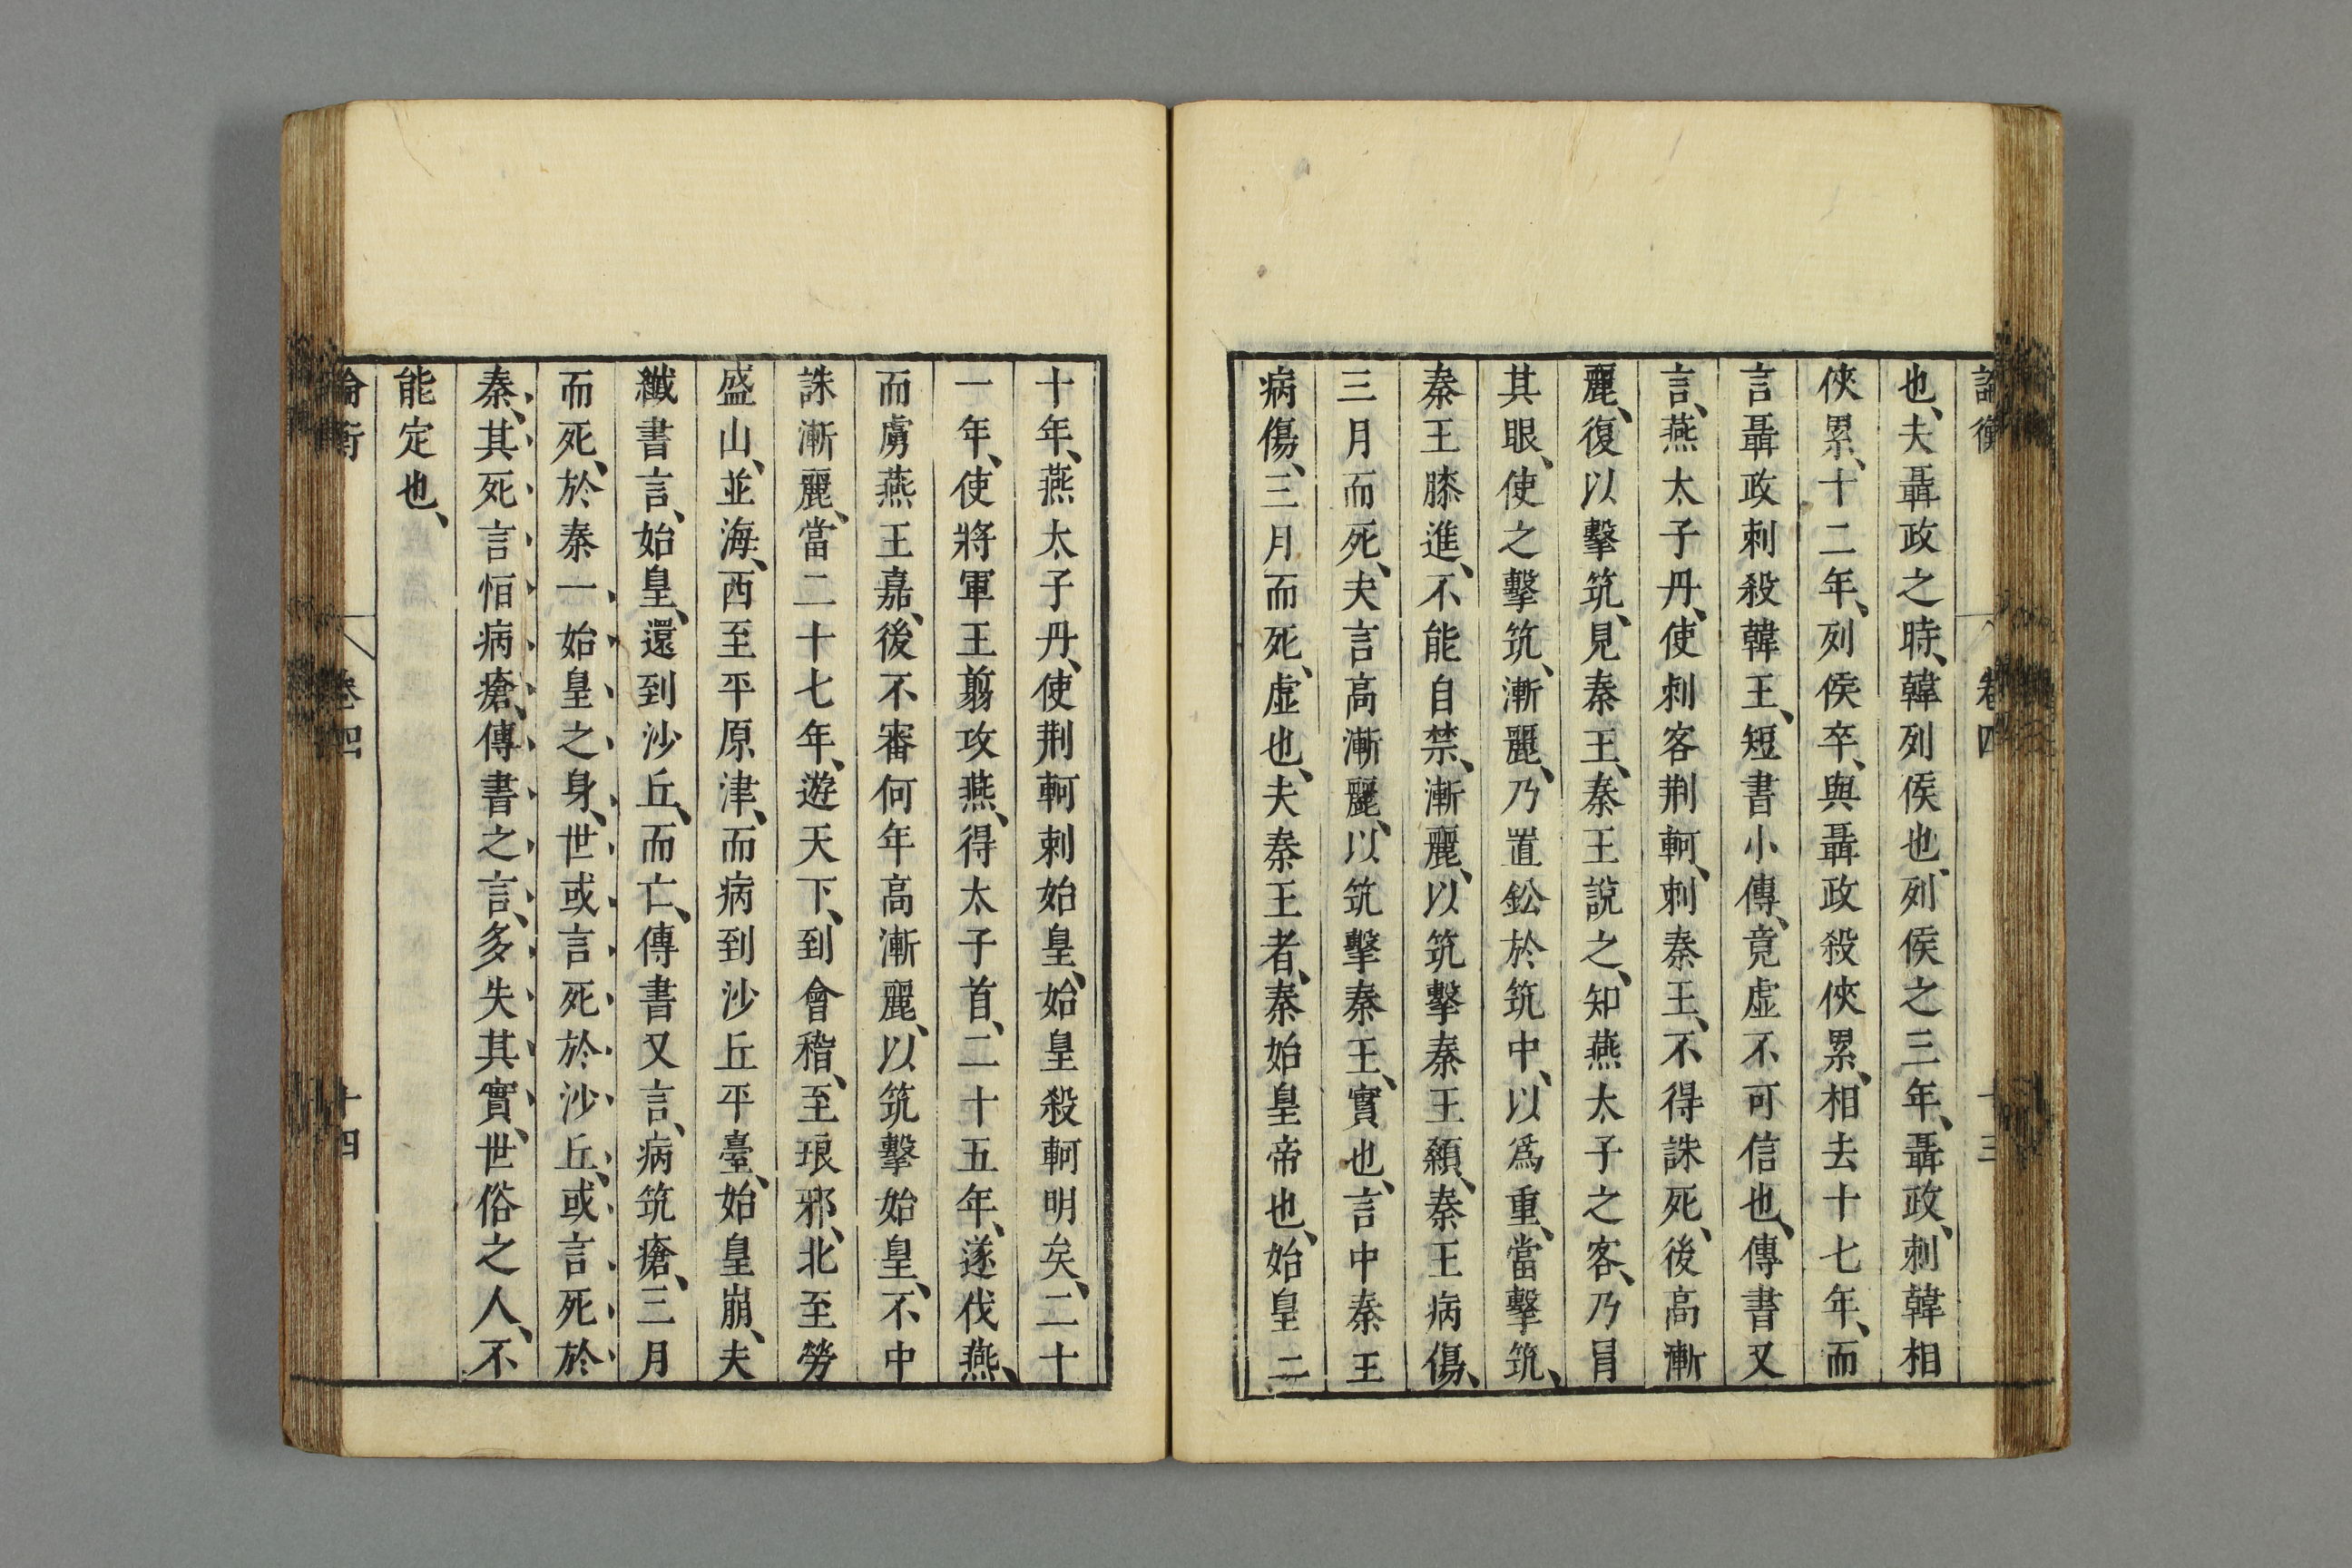 論衡 卷四 十三
也、夫聶政之時、韓列侯也、列侯之三年、聶政、刺韓相
俠累、十二年、列侯卒、與聶政殺俠累、相去十七年、而
言聶政刺殺韓王、短書小傳、竟虛不可信也、傳書又
言、燕太子丹、使刺客荆軻、刺秦王、不得誅死、後高漸
麗、復以擊筑、見秦王、秦王說之、知燕太子之客、乃冐
其眼、使之擊筑、漸麗、乃置鈆於筑中、以爲重、當擊筑、
秦王膝進、不能自禁、漸麗、以筑擊秦王顙、秦王病傷、
三月而死、夫言高漸麗、以筑擊秦王、實也、言中秦王
病傷、三月而死、虛也、夫秦王者、秦始皇帝也、始皇二
十年、燕太子丹、使荆軻刺始皇、始皇殺軻明矣、二十
一年、使將軍王翦攻燕、得太子首、二十五年、遂伐燕、
而虜燕王嘉、後不審何年高漸麗、以筑擊始皇、不中
誅漸麗、當二十七年、遊天下、到會稽、至琅邪、北至勞
盛山、並海、西至平原津、而病到沙丘平臺、始皇崩、夫
纖書言、始皇、還到沙丘、而亡、傳書又言、病筑瘡、三月
而死、於秦一始皇之身、世或言死於沙丘、或言死於
秦、其死言恒病瘡、傳書之言、多失其實、世俗之人、不
能定也、
論衡 卷四 十四